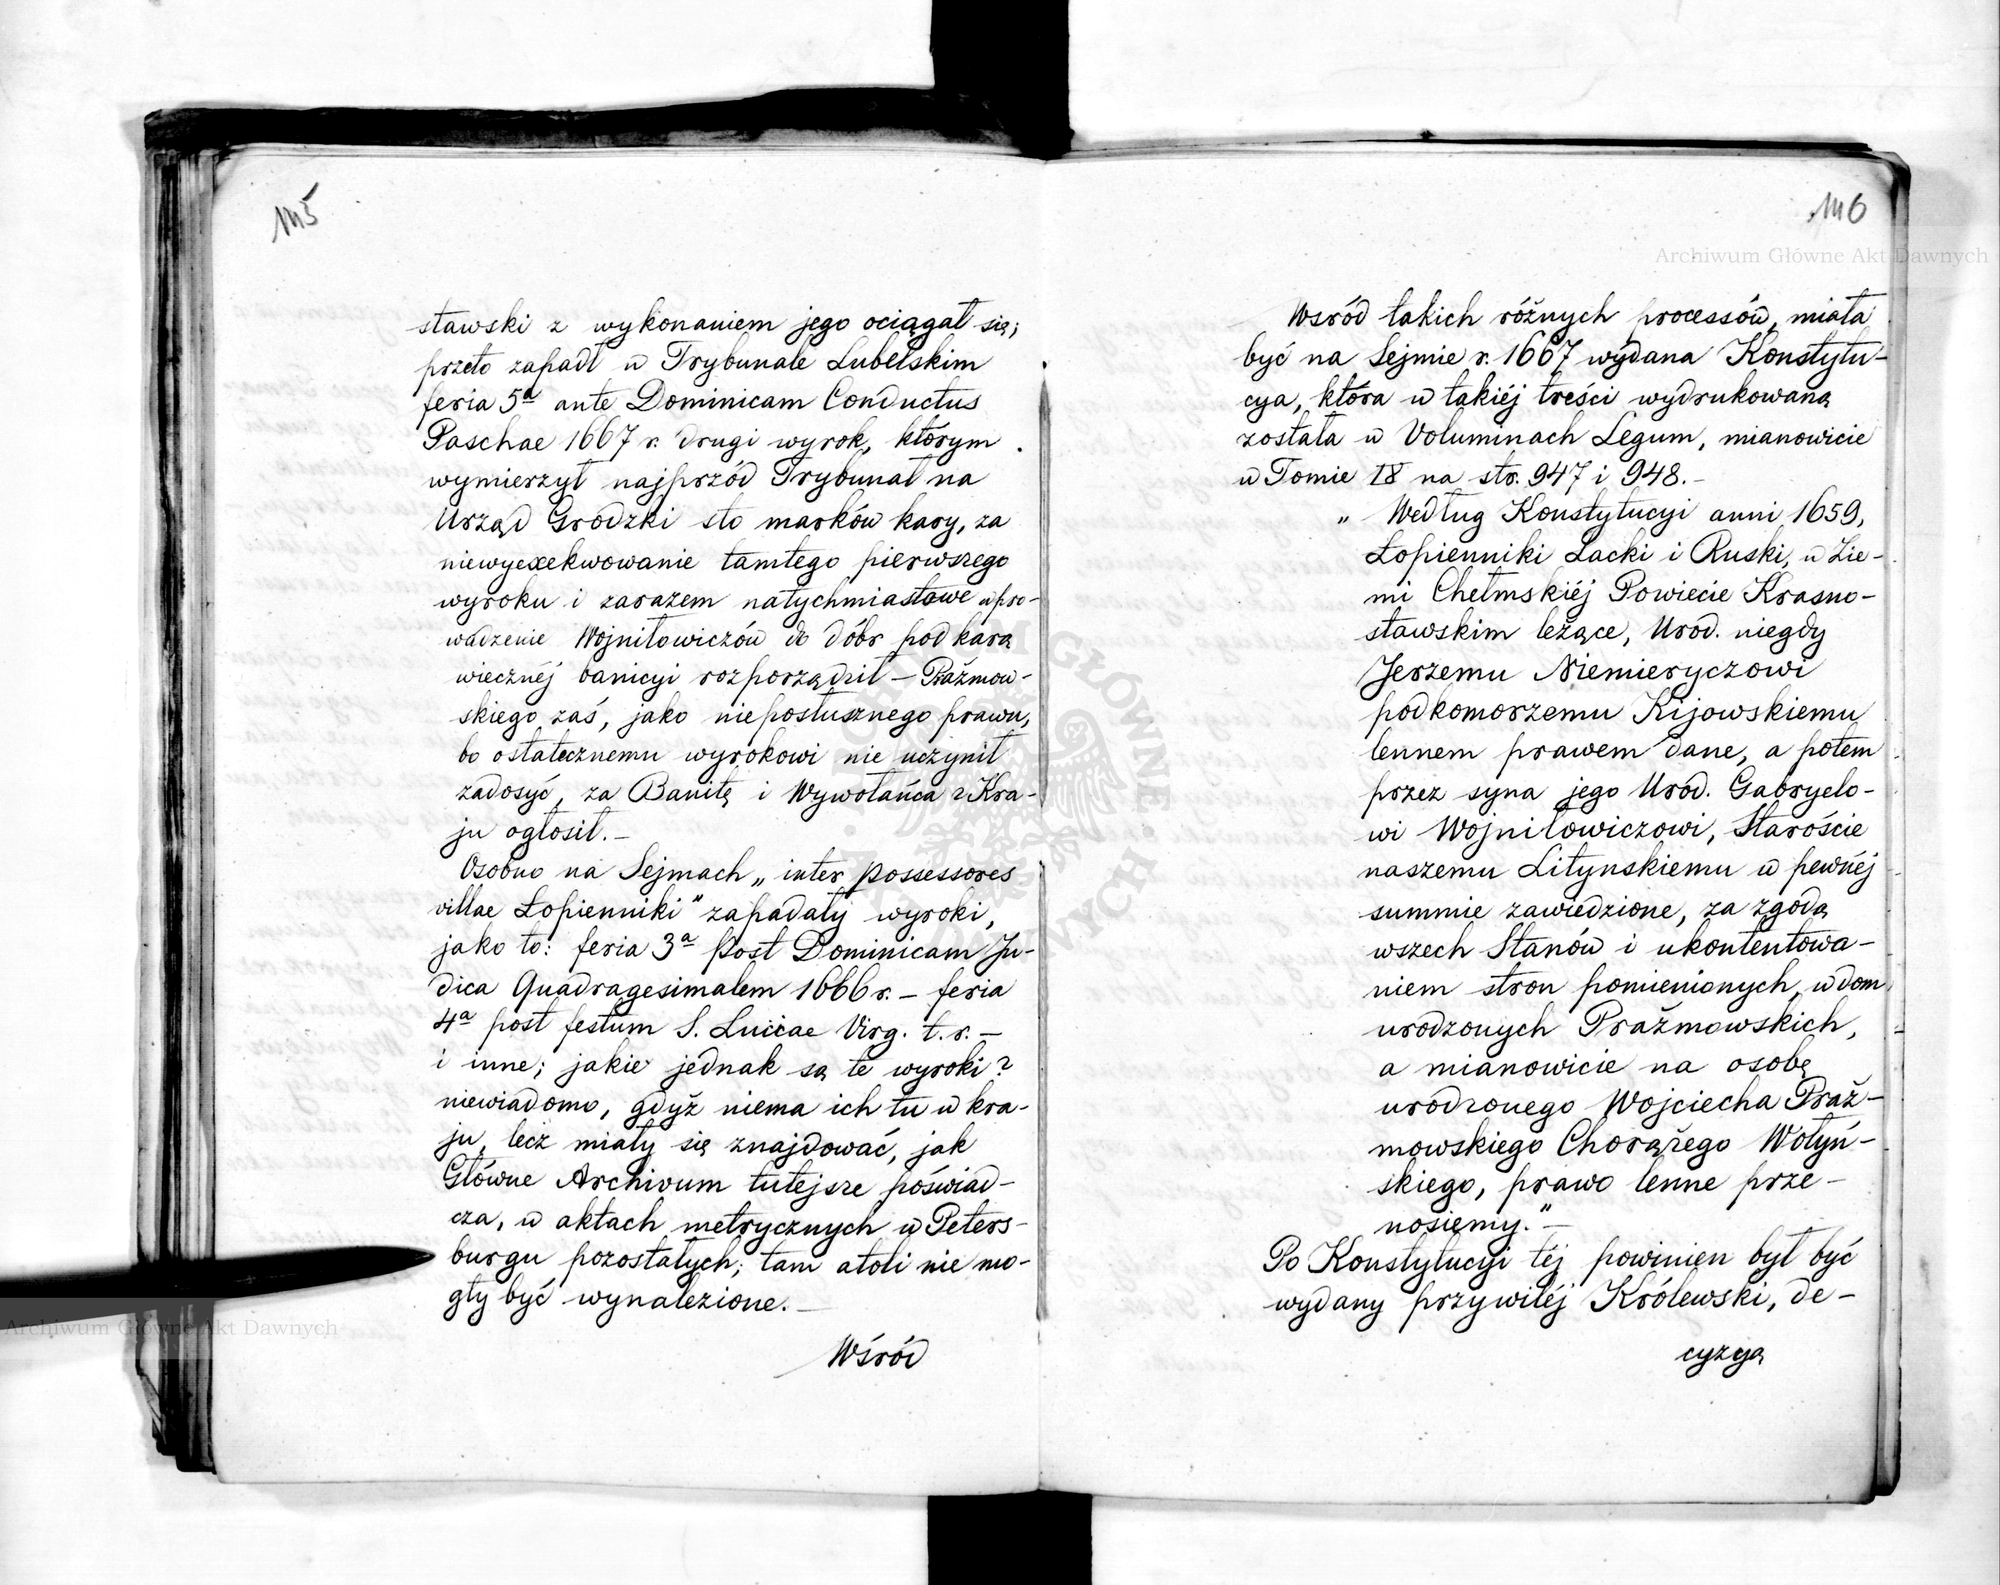 145
stawski z wykonaniem jego ociągał się;
przeto zapadł w Trybunale Lubelskim
feria 5ª ante Dominicam Conductus
Paschae 1667 r. drugi wyrok, którym
wymierzył najprzód Trybunał na
Urząd Grodzki sto marków kary, za
niewyexekwowanie tamtego pierwszego
wyroku i zarazem natychmiastowe wpro-
wadzenie Wojniłowiczów do dóbr pod karą
wiecznéj banicyi rozporządził — Prażmow-
skiego zaś, jako nieposłusznego prawu,
bo ostatecznemu wyrokowi nie uczynił
zadosyć, za Banitę i Wywołańca z Kra-
ju ogłosił. —
Osobno na Sejmach „inter possessores
villae Łopienniki" zapadały wyroki,
jako to: feria 3ª post Dominicam Ju-
dica Quadragesimalem 1666 r. — feria
4ª post festum S. Luciae Virg. t. r. —
i inne; jakie jednak są te wyroki?
niewiadomo, gdyż niema ich tu w kra-
ju, lecz miały się znajdować, jak
Główne Archivum tutejsze poświad-
cza, w aktach metrycznych w Peters-
burgu pozostałych; tam atoli nie mo-
gły być wynalezione. —
Wśród
146
Archiwum Główne Akt Dawnych
Wsród takich różnych processów, miała
być na Sejmie r. 1667 wydana Konstytu-
cya, która w takiéj treści wydrukowaną
została w Voluminach Legum, mianowicie
w Tomie IV na str. 947 i 948. —
„ Według Konstytucyi anni 1659,
Łopienniki Lacki i Ruski, w Zie-
mi Chełmskiéj Powiecie Krasno-
stawskim leżące, Urod. niegdy
Jerzemu Niemieryczowi
podkomorzemu Kijowskiemu
lennem prawem dane, a potem
przez syna jego Urod. Gabryelo-
wi Wojniłowiczowi, Staroście
naszemu Litynskiemu w pewnéj
summie zawiedzione, za zgodą
wszech Stanów i ukontentowa-
niem stron pomienionych, w dom
urodzonych Prażmowskich,
a mianowicie na osobę
urodzonego Wojciecha Praż-
mowskiego Chorążego Wołyń-
skiego, prawo lenne prze-
nosiemy." —
Po Konstytucyi téj powinien był być
wydany przywiléj Królewski, de-
cyzyą
Archiwum Główne Akt Dawnych